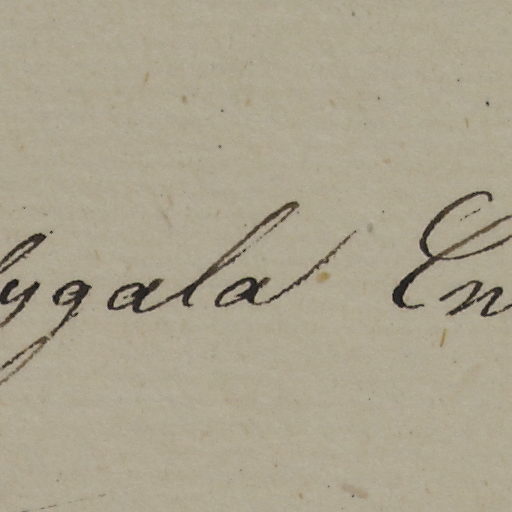 lygala Cn